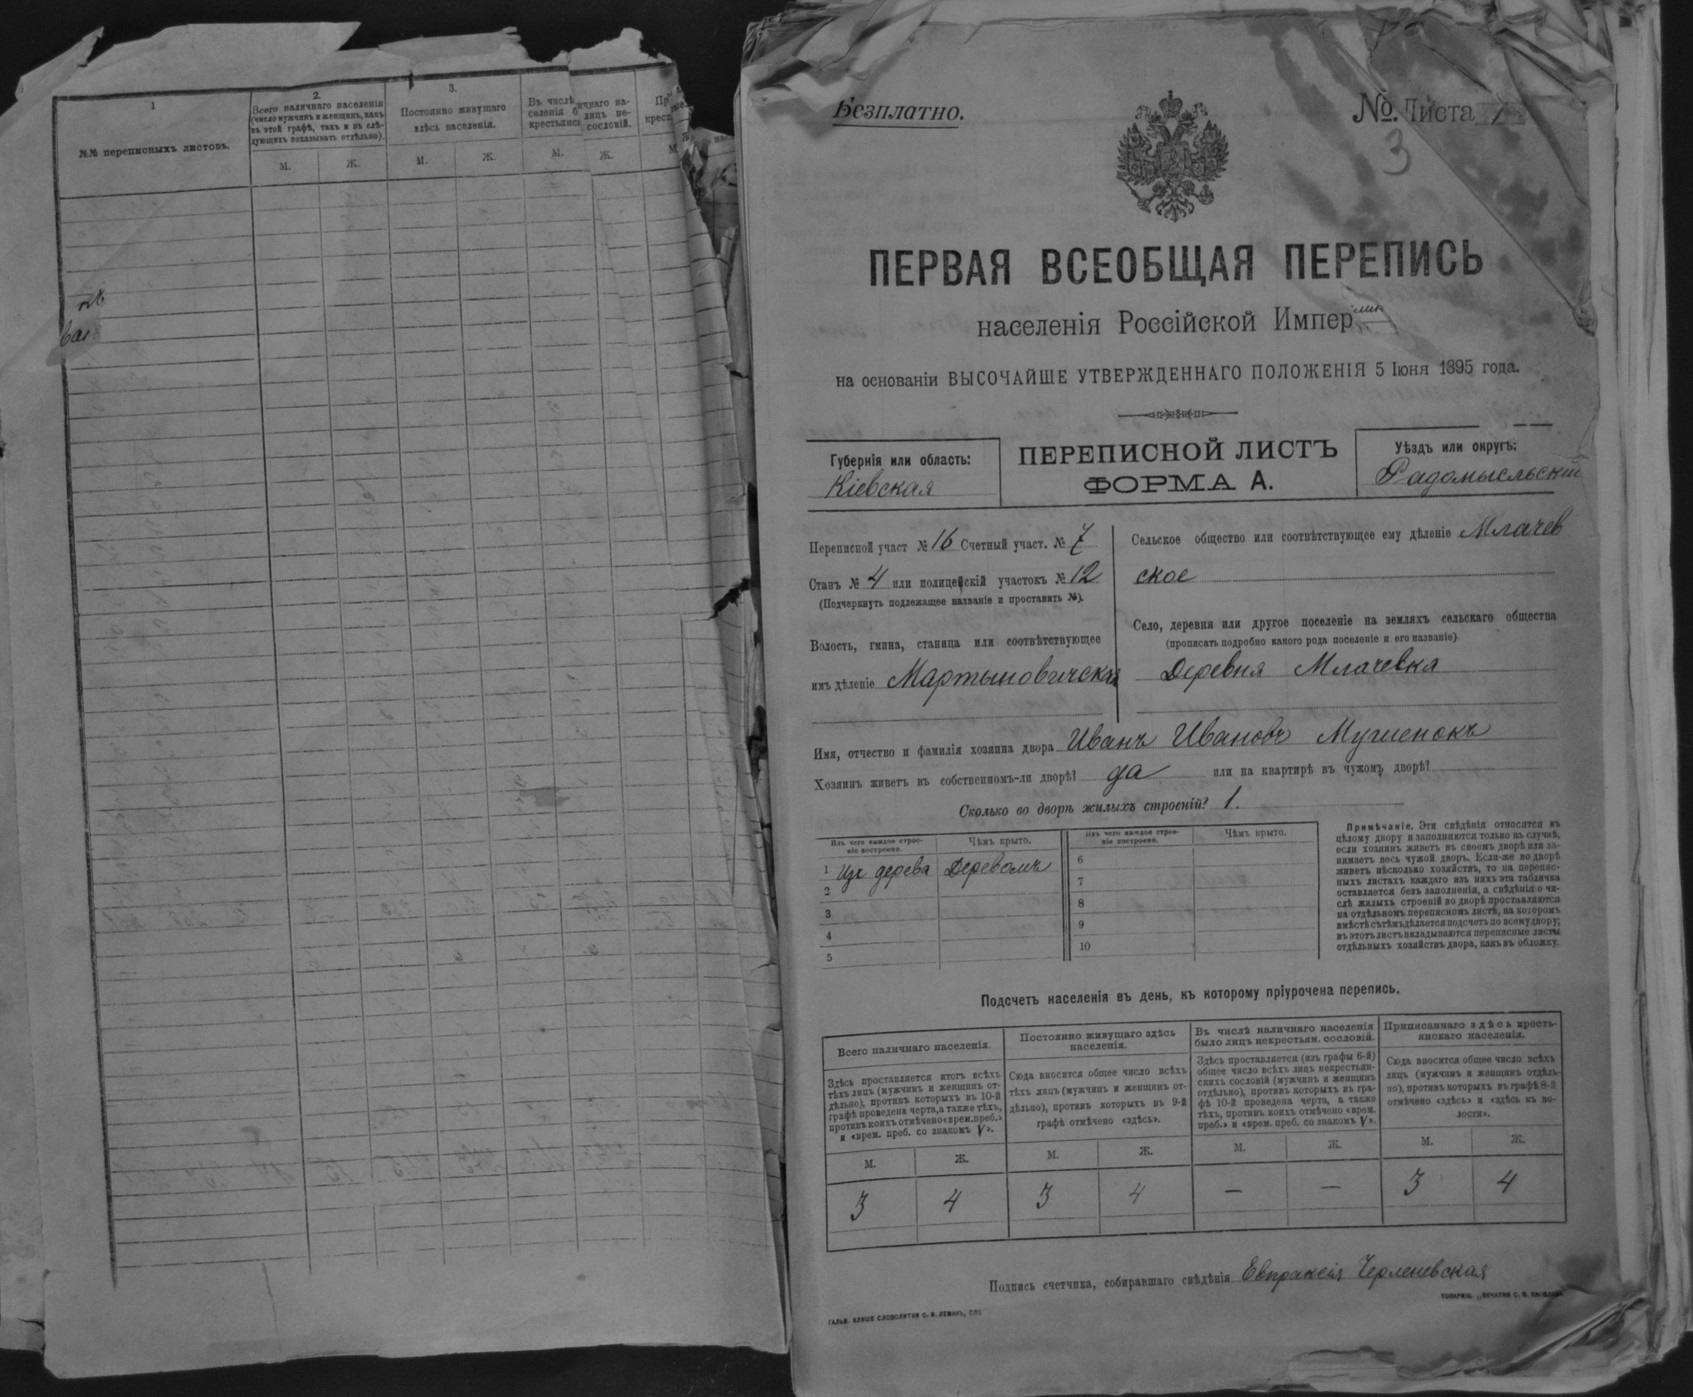 1
№№ переписныхъ листовъ.
2.
Всего наличнаго населенія
(число мужчинъ и женщинъ, какъ
въ этой графѣ, такъ и въ слѣ-
дующихъ показывать отдѣльно).
М. Ж.
3.
Постоянно живущаго
здѣсь населенія.
М. Ж.
Въ числѣ
М. Ж.
Безплатно.
№. Листа
3
ПЕРВАЯ ВСЕОБЩАЯ ПЕРЕПИСЬ
населенія Россійской Импер
на основаніи ВЫСОЧАЙШЕ УТВЕРЖДЕННАГО ПОЛОЖЕНІЯ 5 Іюня 1895 года.
Губернія или область:
Кіевская
ПЕРЕПИСНОЙ ЛИСТЪ
ФОРМА А.
Уѣздъ или округъ:
Радомысльскій
Переписной участ № 16 Счетный участ. № 7
Станъ № 4 или полицейскій участокъ № 12
(Подчеркнуть подлежащее названіе и проставить №).
Волость, гмина, станица или соотвѣтствующее
имъ дѣленіе Мартыновичская
Сельское общество или соотвѣтствующее ему дѣленіе Млачев
ское
Село, деревня или другое поселеніе на земляхъ сельскаго общества
(прописать подробно какого рода поселеніе и его названіе)
Деревня Млачевка
Имя, отчество и фамилія хозяина двора Иванъ Ивановъ Мушенокъ
Хозяинъ живетъ въ собственномъ-ли дворѣ? да или на квартирѣ въ чужомъ дворѣ?
Сколько во дворѣ жилыхъ строеній? 1.
Изъ чего каждое строе-
ніе построено.
Чѣмъ крыто.
1 Изъ дерева Деревомъ
2
3
4
5
Изъ чего каждое строе-
ніе построено.
Чѣмъ крыто.
6
7
8
9
10
Примѣчаніе. Эти свѣдѣнія относятся къ
цѣлому двору и заполняются только въ случаѣ,
если хозяинъ живетъ въ своемъ дворѣ или за-
нимаетъ весь чужой дворъ. Если-же во дворѣ
живетъ нѣсколько хозяйствъ, то на перепис-
ныхъ листахъ каждаго изъ нихъ эта табличка
оставляется безъ заполненія, а свѣдѣнія о чи-
слѣ жилыхъ строеній во дворѣ проставляются
на отдѣльномъ переписномъ листѣ, на которомъ
вмѣстѣ съ тѣмъ дѣлается подсчетъ по всему двору;
въ этотъ листъ вкладываются переписные листы
отдѣльныхъ хозяйствъ двора, какъ въ обложку.
Подсчетъ населенія въ день, къ которому пріурочена перепись.
Всего наличнаго населенія.
Здѣсь проставляется итогъ всѣхъ
тѣхъ лицъ (мужчинъ и женщинъ от-
дѣльно), противъ которыхъ въ 10-й
графѣ проведена черта, а также тѣхъ,
противъ коихъ отмѣчено «врем. преб.»
и «врем. преб. со знакомъ V».
М. Ж.
3 4
Постоянно живущаго здѣсь
населенія.
Сюда вносится общее число всѣхъ
тѣхъ лицъ (мужчинъ и женщинъ от-
дѣльно), противъ которыхъ въ 9-й
графѣ отмѣчено «здѣсь».
М. Ж.
3 4
Въ числѣ наличнаго населенія
было лицъ некрестьян. сословій.
Здѣсь проставляется (изъ графы 6-й)
общее число всѣхъ лицъ некрестьян-
скихъ сословій (мужчинъ и женщинъ
отдѣльно), противъ которыхъ въ гра-
фѣ 10-й проведена черта, а также
тѣхъ, противъ коихъ отмѣчено «врем.
преб.» и «врем. преб. со знакомъ V».
М. Ж.
— —
Приписаннаго здѣсь кресть-
янскаго населенія.
Сюда вносится общее число всѣхъ
лицъ (мужчинъ и женщинъ отдѣль-
но), противъ которыхъ въ графѣ 8-й
отмѣчено «здѣсь» и «здѣсь въ во-
лости».
М. Ж.
3 4
Подпись счетчика, собиравшаго свѣдѣнія Евпраксія Черленевская
ГАЛЬВ. КЛИШЕ СЛОВОЛИТНИ О. И. ЛЕМАНЪ, СПБ.